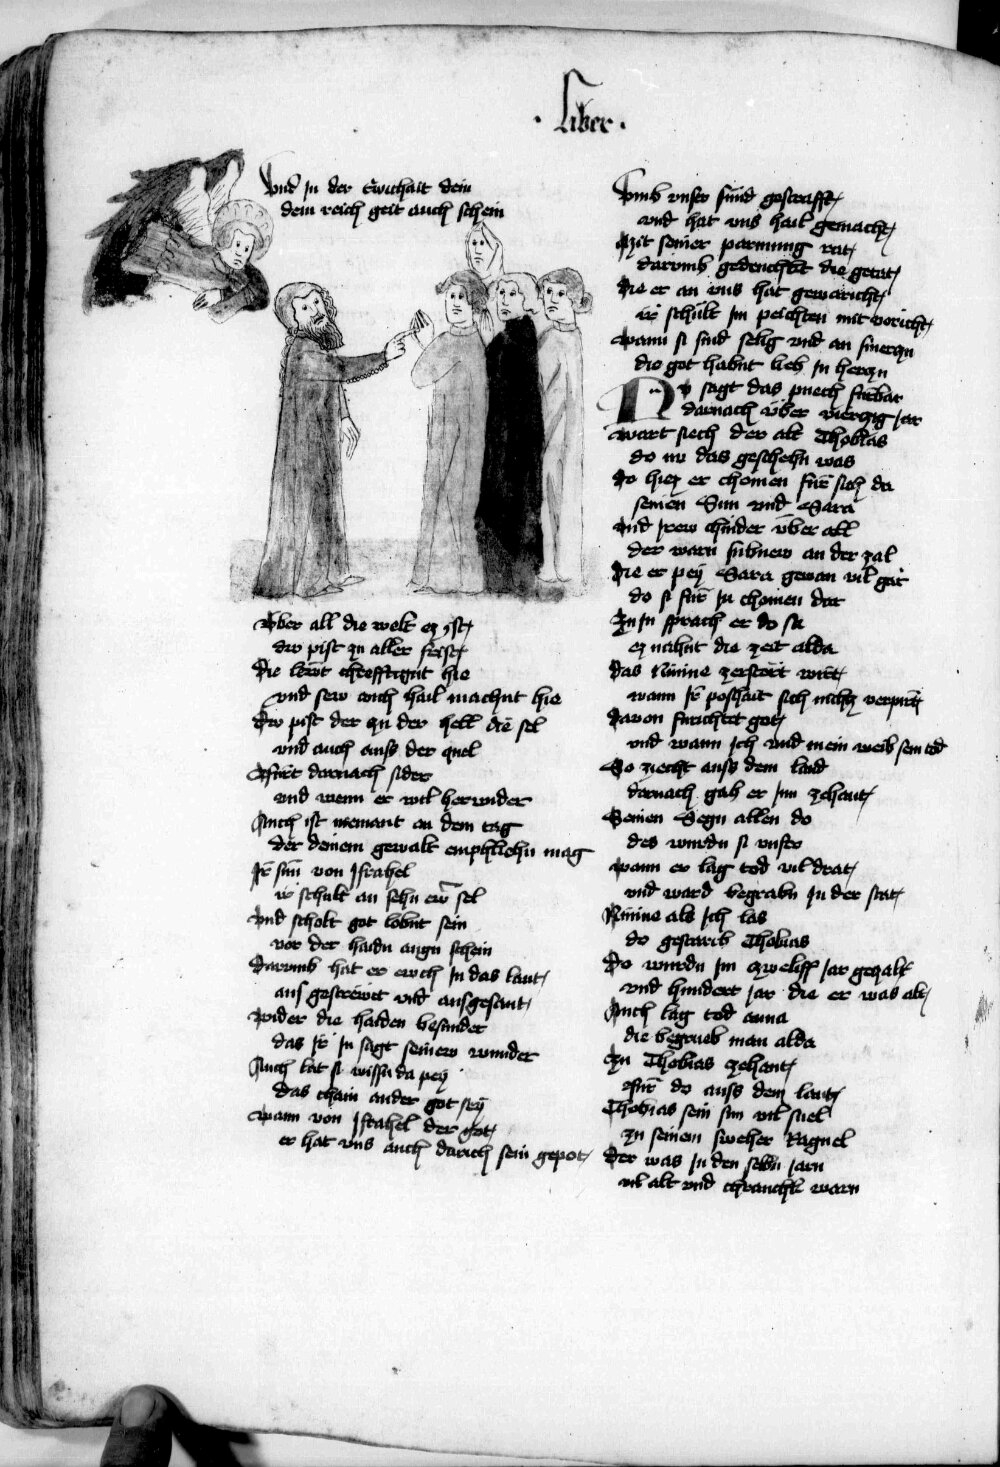 · Liber ·
Vnd in der ewichait dein
dein reich geit auch schein
Vber all die welt ez yst
dw pist zu aller frist
Die lewt chrefftigut hie
vnd sew auch hail machnt hie
Dw pist der zu der hell die sel
vnd auch auss der quel
Fürt darnach sider
vnd wenn er wil herwider
Auch ist niemant an dem tag
der deinem gewalt emphliehn mag
Ir sün von Israhel
ir schult an sehn ewr sel
Vnd scholt got lobnt sein
vor der haidn augn schein
Darumb hat er ewch in das lant
aus gestrewet vnd ausgesant
Wider die haiden besunder
das ir in sagt seinew wunder
Auch lat si wissn da pey
das chain ander got sey
Wann von Israhel der got
er hat vns auch durich sein gepot
Vmb vnser sünd gestrafft
vnd hat vns hail gemacht
Mit seiner parmung rat
darumb gedenchkt die getat
Die er an vns hat gewaricht
ir schült im peichten mit voricht
Wann si sind selig vnd an smerczn
die got habnt lieb in herczn
Nv sagt das puech fürbar
darnach über vierczig jar
Wart siech der alt Thobias
do nv das geschehn was
Do hiez er chomen für sich da
seinen Sun vnd Sara
Vnd irew chinder über all
der warn sübnew an der zal
Die er pey Sara gewan vil gar
do si für in chomen dar
Zu in sprach er do sa
ez nahnt die zeit alda
Das Ninive zerstört wirt
wann ir poshait sich nichtz verpirt
Davon fürichtet got
vnd wann ich vnd mein weib sein tod
So ziecht auss dem land
darnach gab er inn zehant
Seinen Segn allen do
des wurdn si vnfro
Wann er lag tod vil drat
vnd ward begrabn in der stat
Ninive als ich las
do gestarib Thobias
Do wurdn im zweliff jar gezalt
vnd hundert jar die er was alt
Auch lag tod anna
die begrueb man alda
Zu Thobias zehant
für do auss dem lant
Thobias sein sun vil snel
zu seinem sweher Raguel
Der was in den selbn jarn
vil alt vnd chranchk warn